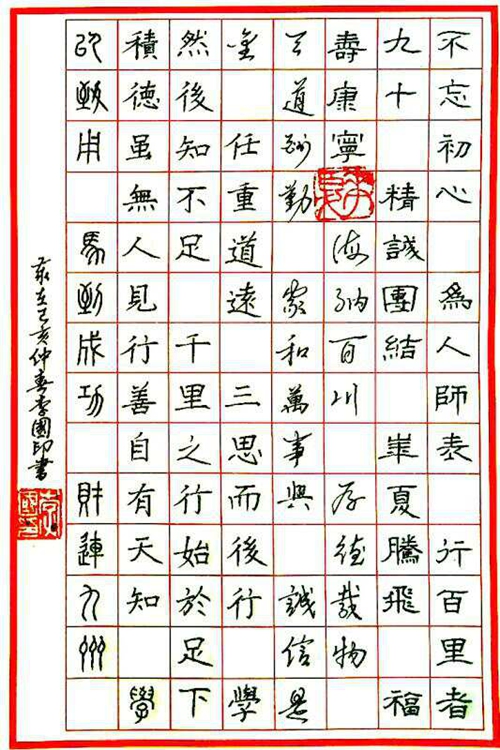 不忘初心 為人師表 行百里者
九十 精誠團結 華夏騰飛 福
壽康寧 海納百川 厚德載物
天道酬勤 家和萬事興 誠信是
金 任重道遠 三思而後行 學
然後知不足 千里之行始於足下
積德虽無人見 行善自有天知 學
以致用 馬到成功 財連九州
歲在己亥仲春李國印書